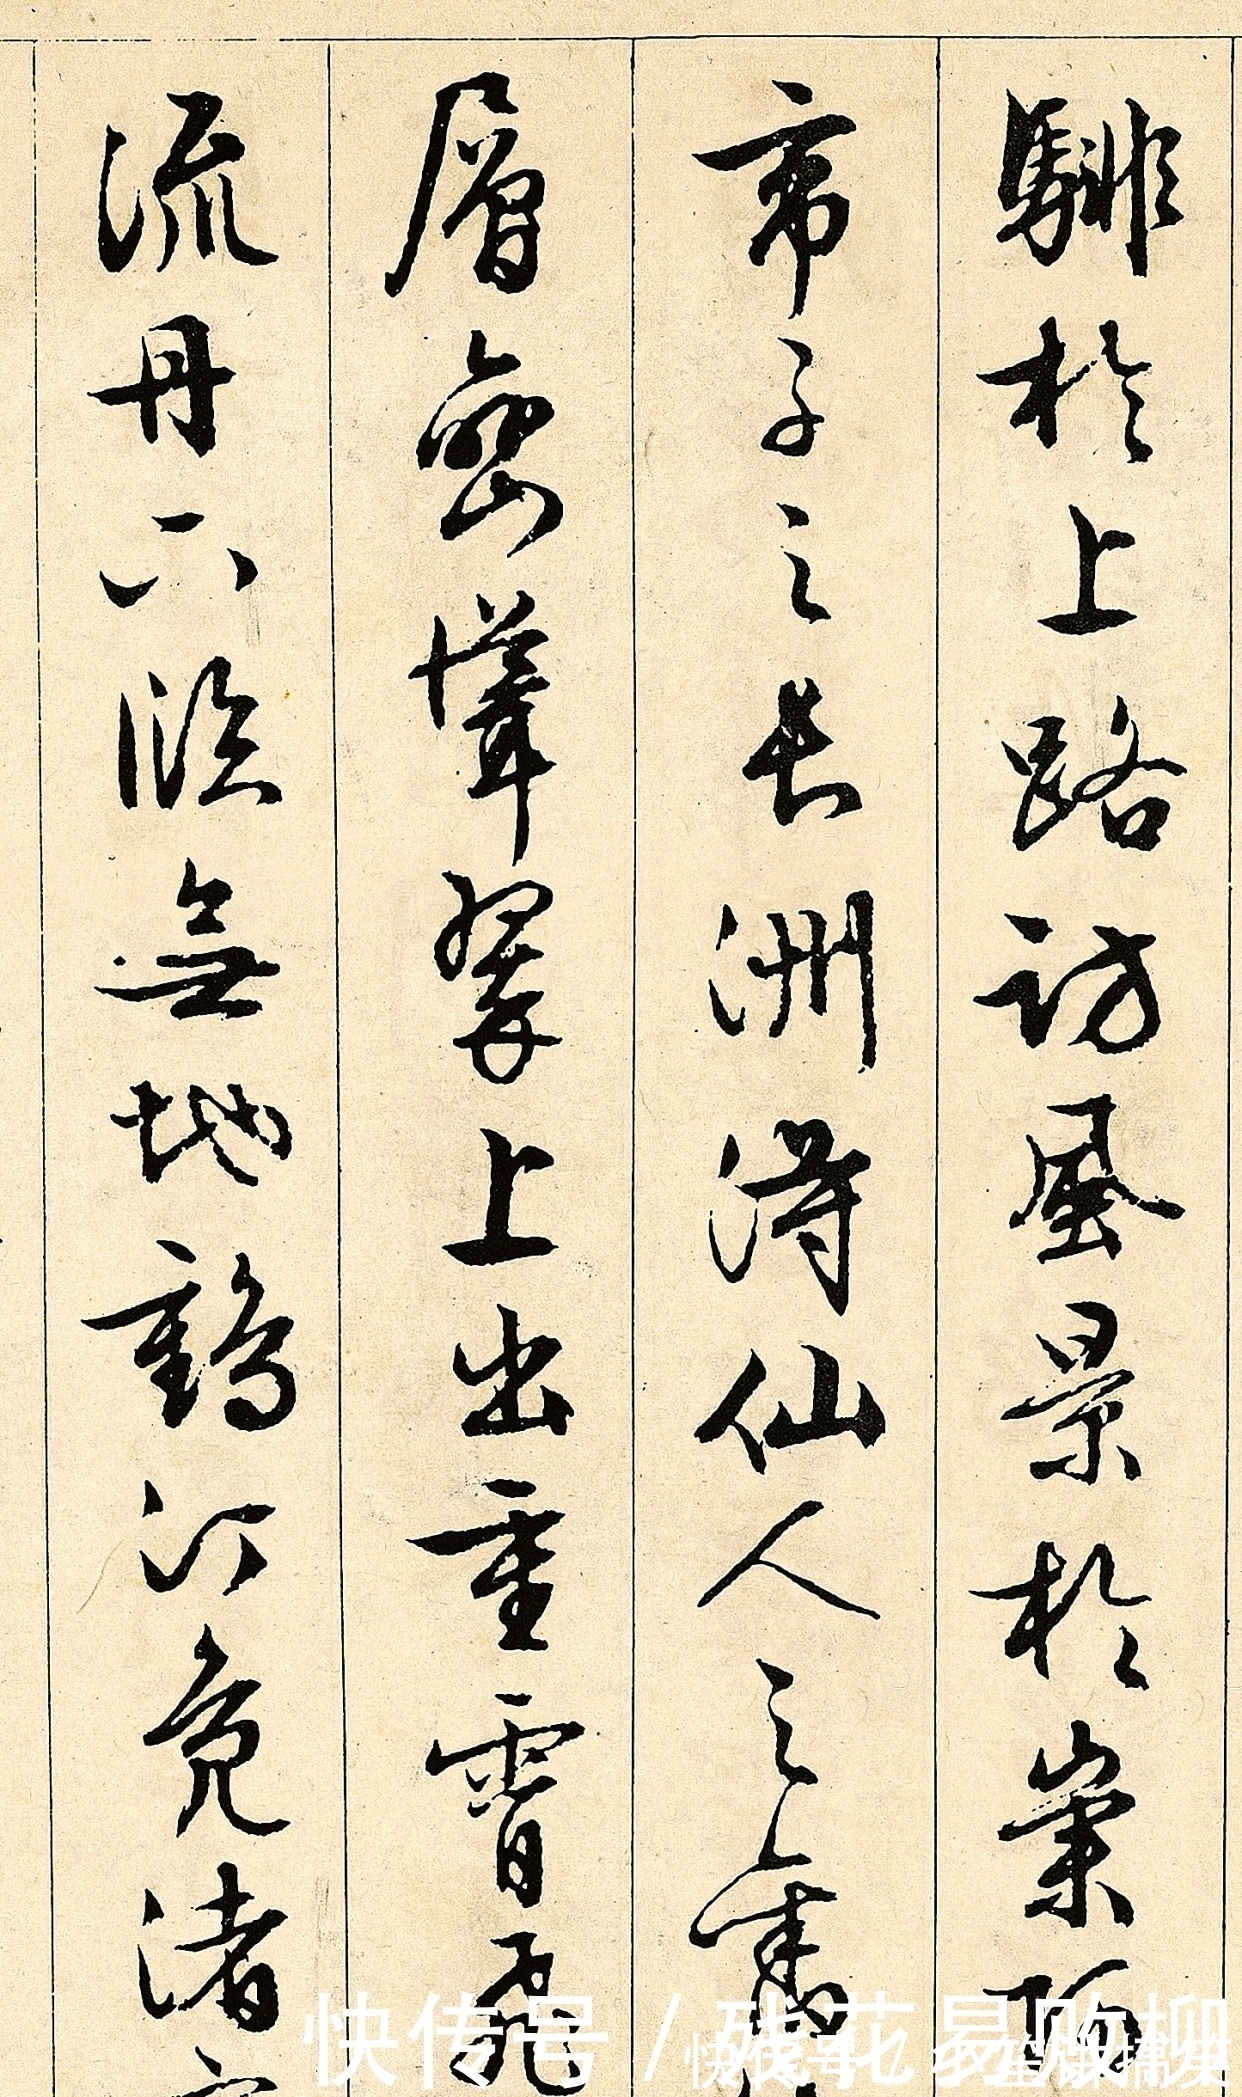 騑於上路訪風景於崇阿
帝子之長洲得仙人之舊
層巒聳翠上出重霄飛
流丹下臨無地鶴汀鳧渚
快传号 / 残花易败柳